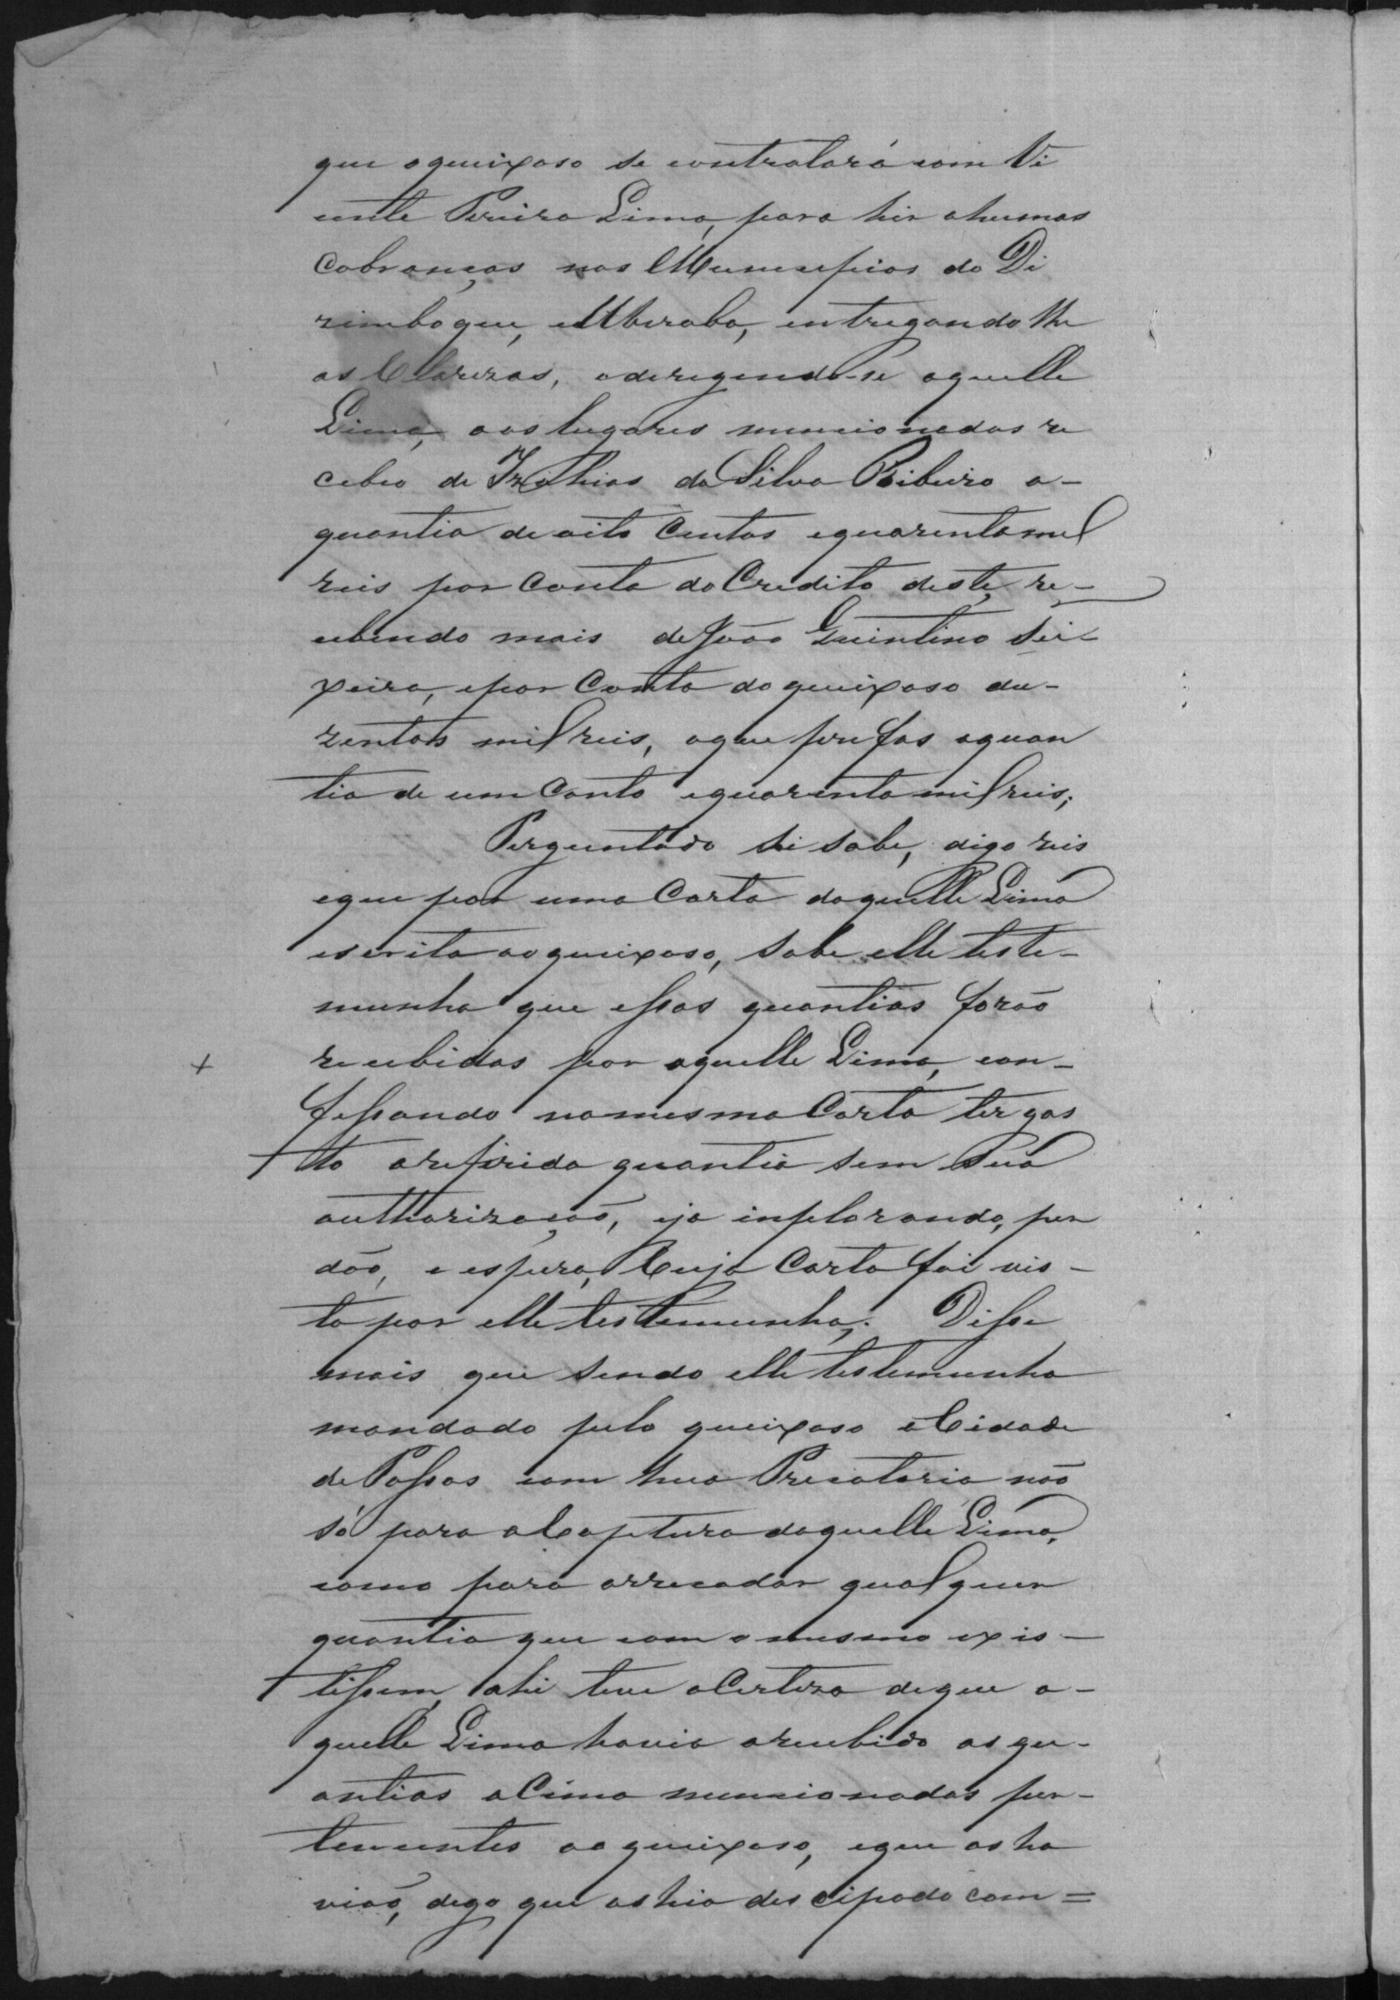 que o queixoso se contratara com Vi
cente Pereira Lima, para hir a humas
cobranças nos Municipios do
e Uberaba, entregando lhe
as Clarezas, e deregendo-se aquelle
Lima, aos lugares muncionados re
cebeo de da Silva Ribeiro a-
quantia de oito centos e quarenta mil
reis por conta do Credito deste, re-
cebendo mais de João Quintino Tei-
xeira, e por conta do queixoso du-
zentos mil reis, o que prefas a quan
tia de um conto e quarenta mil reis;
Perguntado si sabe, digo reis
e que por uma Carta daquelle Lima
escrita ao queixoso, sabe elle teste-
munha que essas quantias forão
recebidas por aquelle Lima, con-
fessando na mesma Carta ter gas
to a referida quantia sem sua
authorização, e ja inplorando, per
dão, e espera, Cuja Carta foi vis-
ta por elle testemunha; Disse
mais que sendo elle testemunha
mandado pelo queixoso a Cidade
de Passos com hua Precatoria não
só para a Captura daquelle Lima,
como para arrecadar qualquer
quantia que com o mesmo exis-
tissem, ahi teve a Certeza de que a-
quelle Lima havia a recebido as qu-
antias a Cima muncionadas per-
tencentes ao queixoso, e que as ha
vião, dego que as hia descipado com=